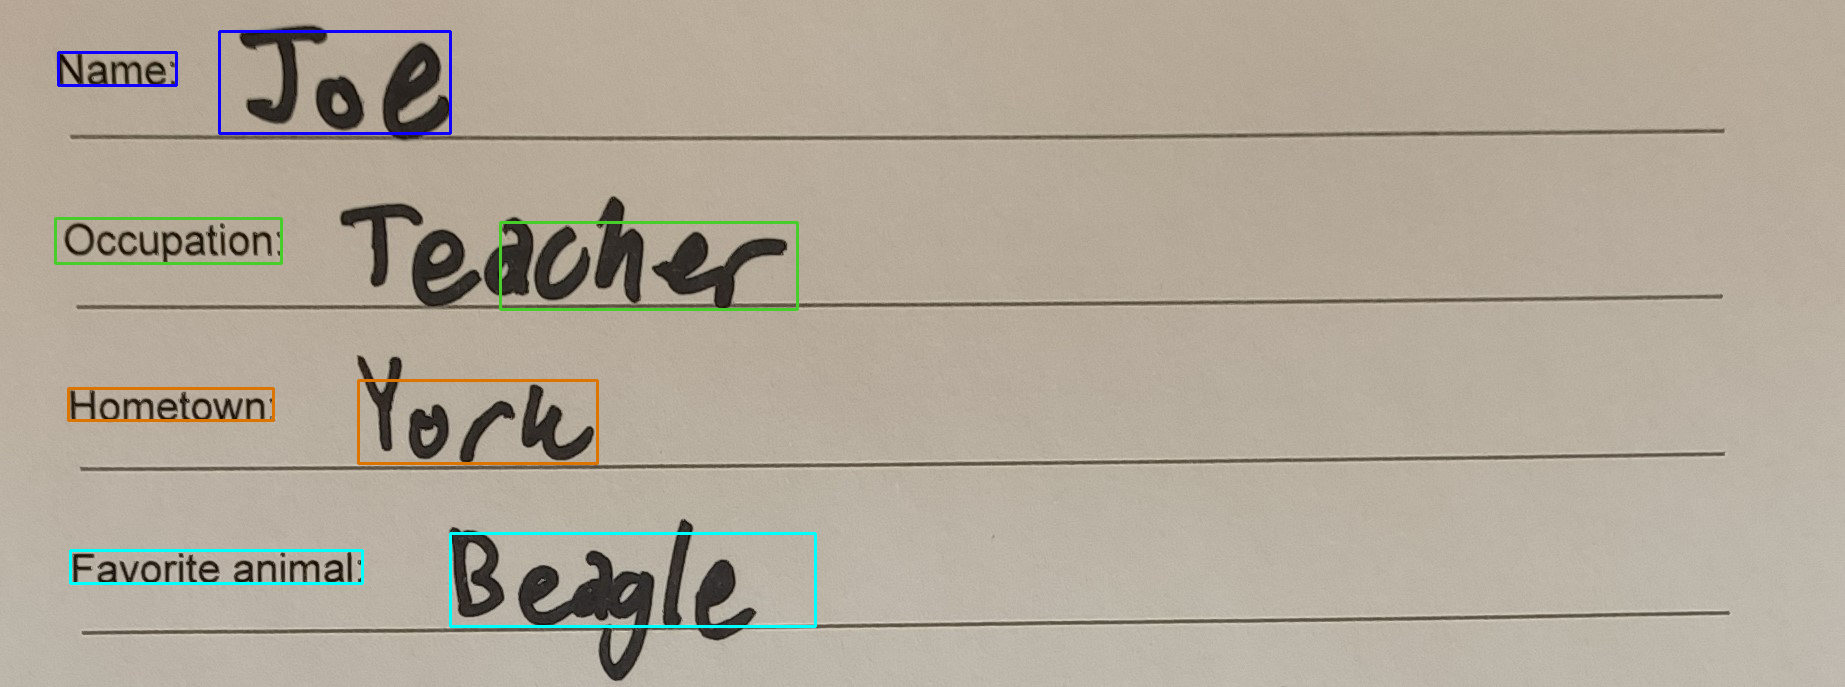 Name: Joe
Occupation: Teacher
Hometown: York
Favorite animal: Beagle